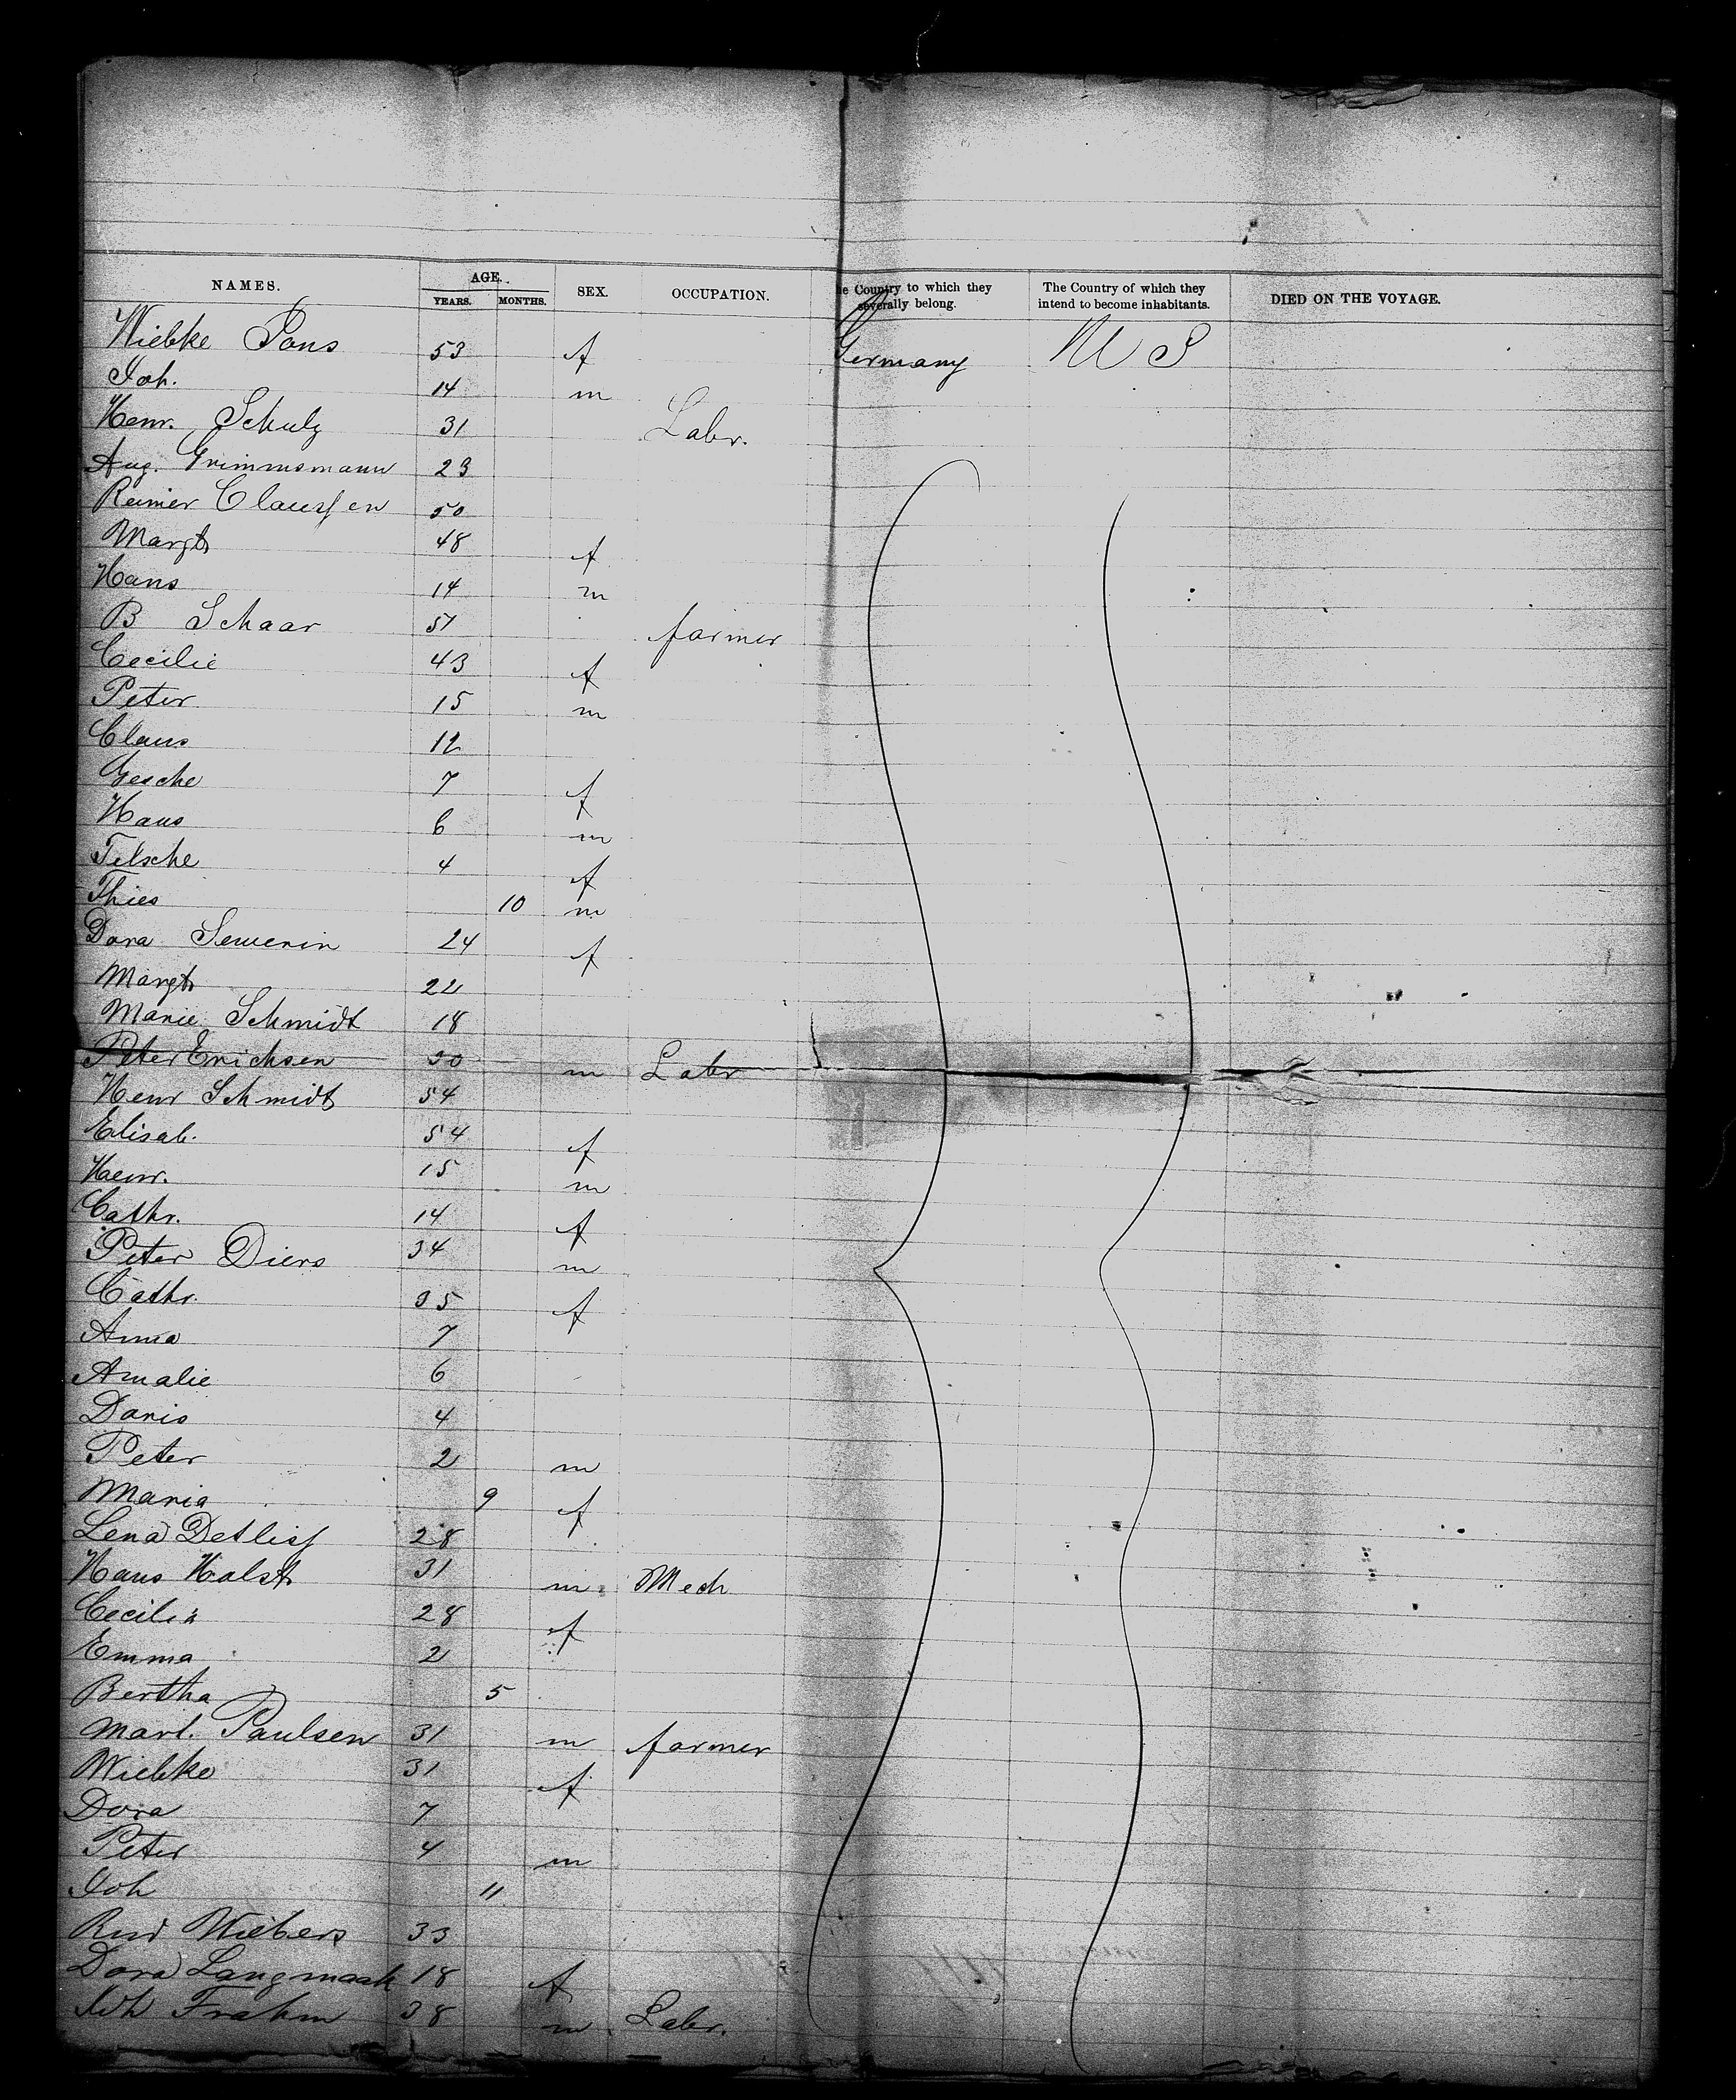 NAMES. AGE. YEARS. MONTHS. SEX. OCCUPATION. e Country to which they severally belong. The Country of which they intend to become inhabitants. DIED ON THE VOYAGE.
Wiebke 53 f Germany U S
Joh. 14 m
Henr. Schulz 31 Labr.
Aug. Grimmsmann 23
Reimer Claussen 50
Margt 48 f
Hans 14 m
B Schaar 51 farmer
Cecilie 43 f
Peter 15 m
Claus 12
Gesche 7 f
Hans 6 m
Telsche 4 f
Thies 10 m
Dora Sewerin 24 f
Margt 22
Marie Schmidt 18
Peter Erichsen 30 m Labr
Henr Schmidt 54
Elisab. 54 f
Henr. 15 m
Cathr. 14 f
Peter Diers 34 m
Cathr. 35 f
Anna 7
Amalie 6
Doris 4
Peter 2 m
Maria 9 f
Lena Detlief 28
Hans Holst 31 m Mech
Cecilia 28 f
Emma 2
Bertha 5
Mart. Paulsen 31 m farmer
Wiebke 31 f
Dora 7
Peter 4 m
Joh 11
Rud Wiebers 33
Dora Langmaak 18 f
Joh Frahm 38 m Labr.